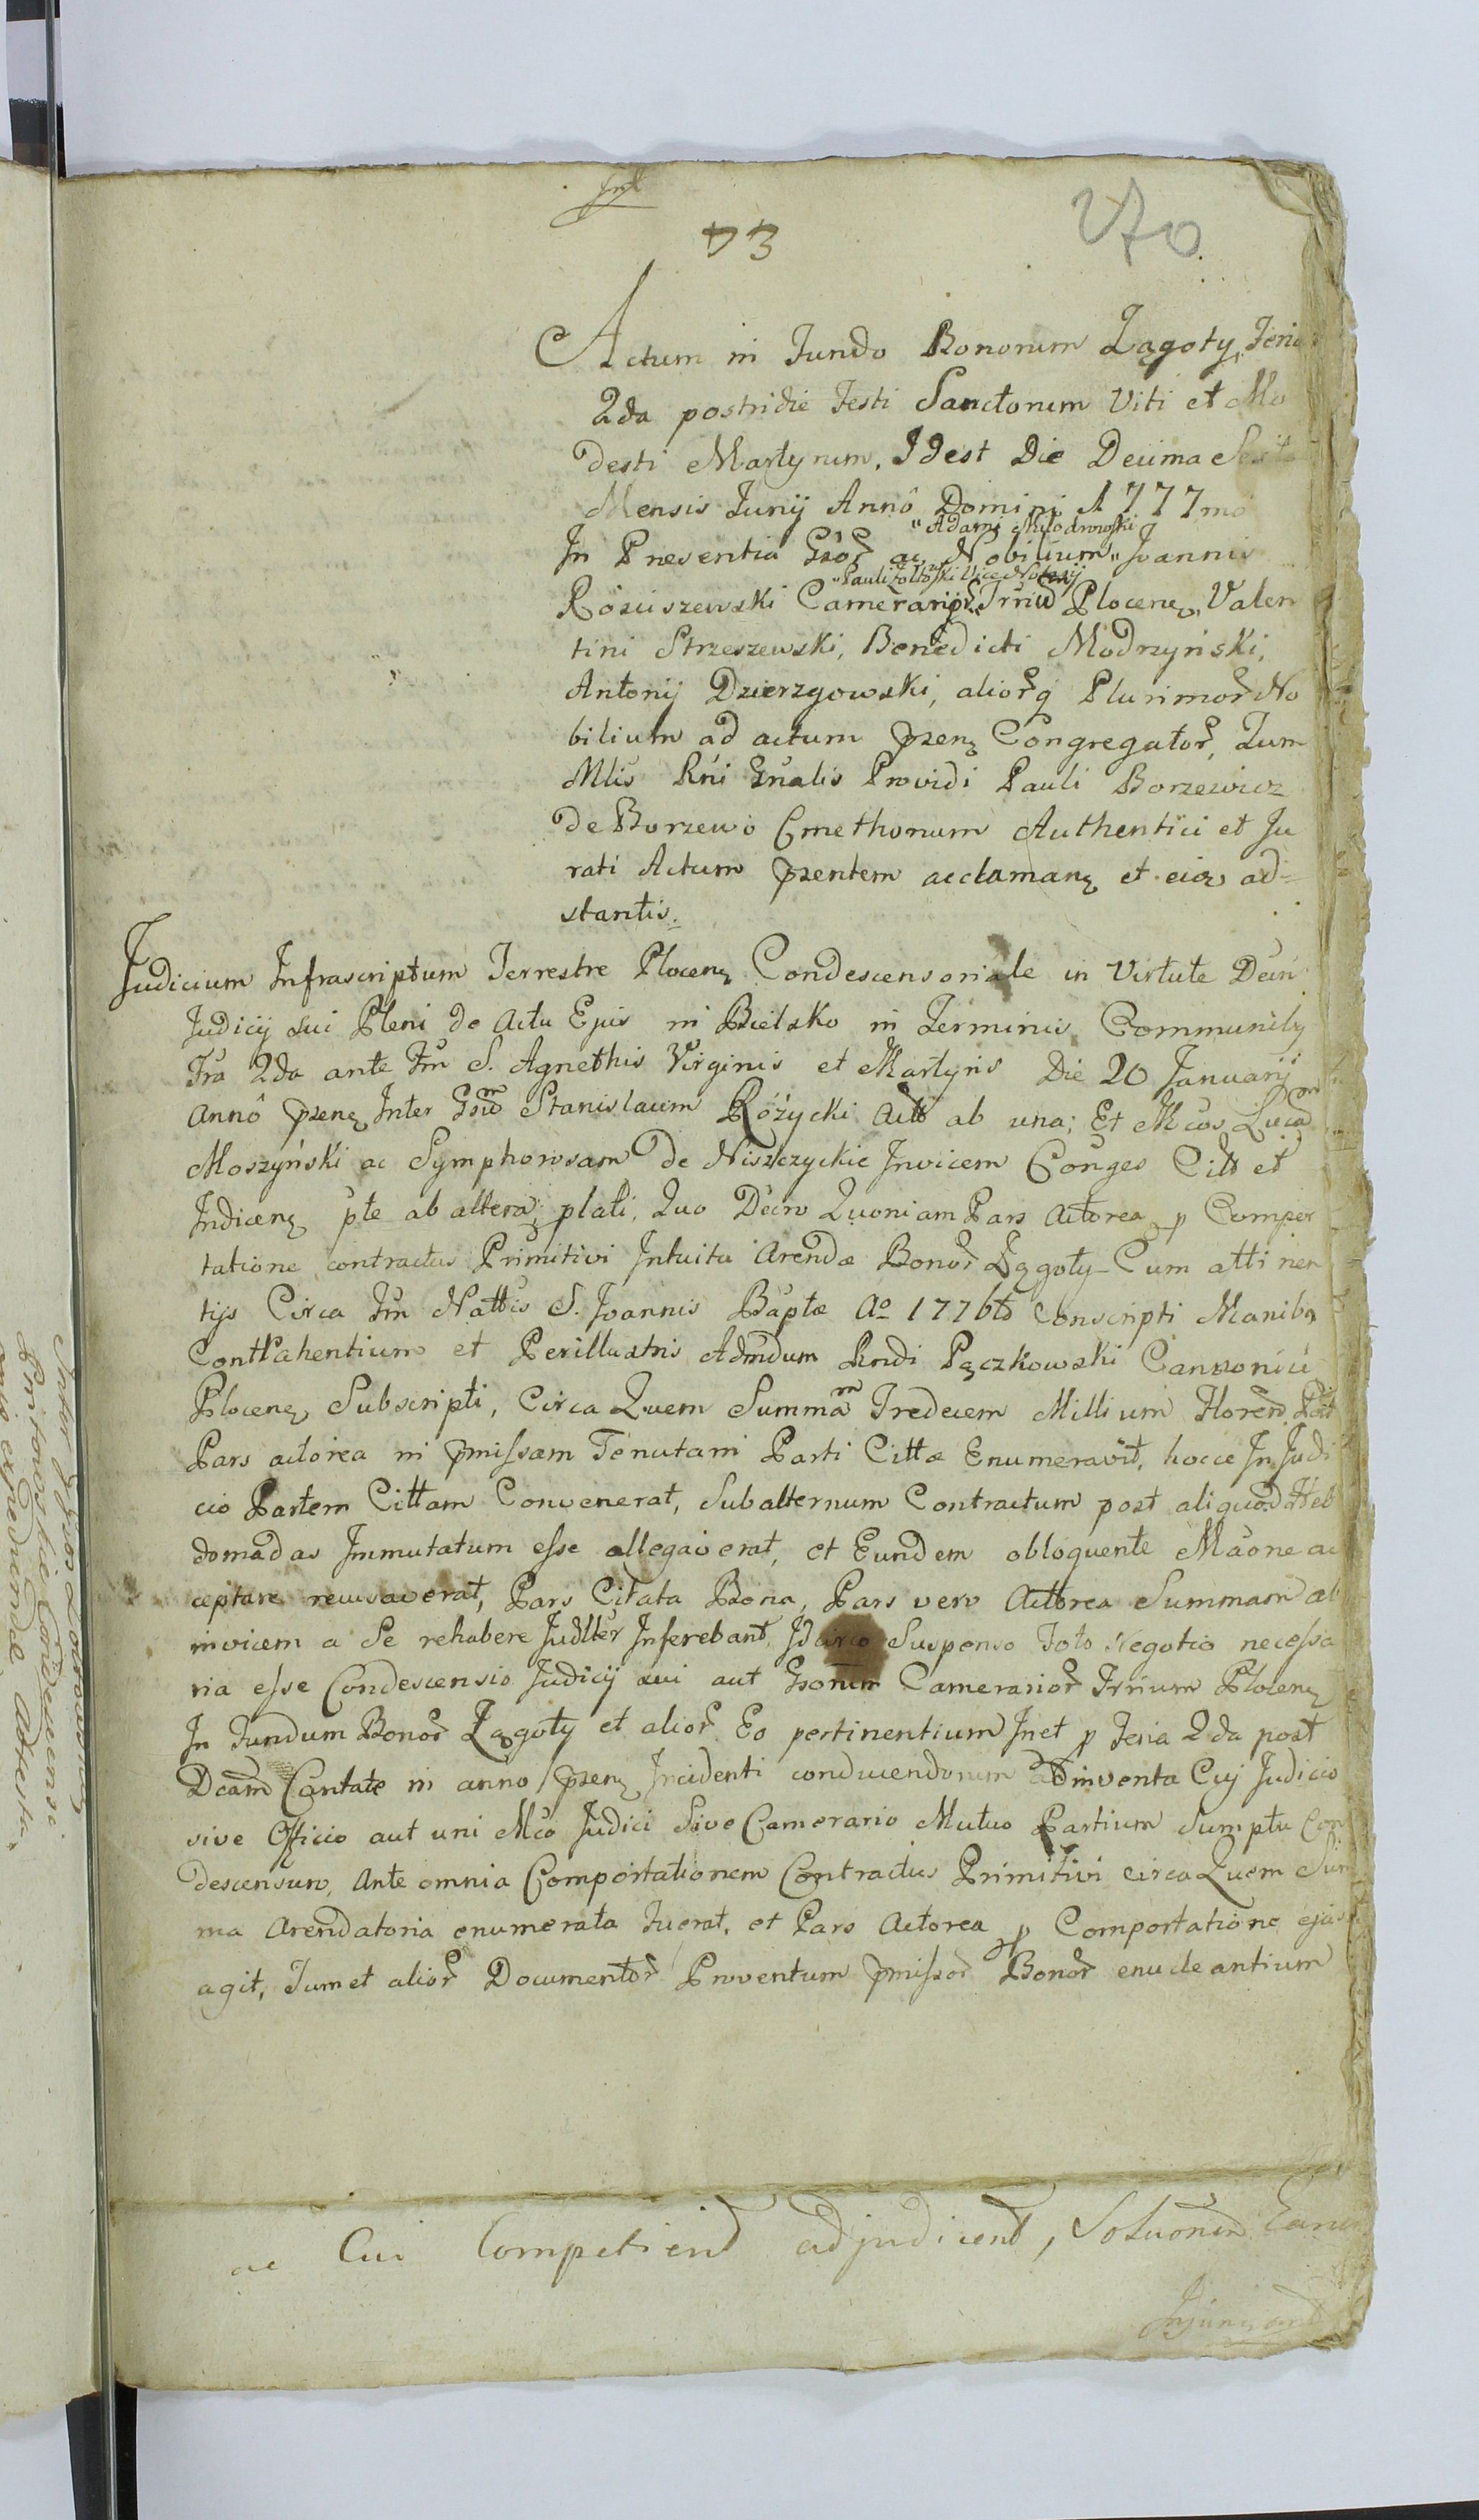 73
270
Actum in Fundo Bonorum Łągoty, Feria
2da postridie Festi Sanctorum Viti et Mo
desti Martyrum, Idest Die Decima Sexta
Mensis Junij Annô Domini 1777mo
"Adami Młodzianowski
In Presentia Gsor ac Nobilium " Joannis
"Pauli Żółtowski Vice Notarij
Rościszewski Camerarij Trrium Plocens, Valen
tini Strzeszewski, Benedicti Modrzyński,
Antonij Dzierzgowski, aliorq Plurimor No
bilium ad actum pzens Congregator, Tum
Mlis Rni Gnalis Providi Pauli Borzewicz
de Borzewo Cmethonum Authentici et Ju
rati Actum pzentem acclamans et eidē ad=
stantis.
Judicium Infrascriptum Terrestre Plocens Condescensoriale in Virtute Decri
Judicij sui Pleni de Actu Ejus in Bielsko in Terminis Communiby
Fra 2da ante Ftm S. Agnethis Virginis et Martyris Die 20 Januarij
Annô pzens Inter Gsum Stanislaum Różycki Actt ab una; Et Mcos Lucam
Moszyński ac Symphorosam de Niszczyckie Invicem Conges Citt et
Indicens pte ab altera; plati, Quo Decro Quoniam Pars Actorea p Compor
tatione contractus Primitivi Intuitu Arendæ Bonor Łągoty Cum atti nen
tijs Circa Ftm Nattis S. Joannis Baptæ Ao 1776to Conscripti Manibq
Conttahentium et Perillustris Admdum Rndi Pączkowski Cannonici
Plocens Subscripti, Circa Quem Summam Tredecem Millium Floren. Pol
Pars actorea in pmissam Tenutam Parti Cittæ Enumeravit, hocce In Judi
cio Partem Cittam Convenerat, Subalternum Contractum post aliquod Heb
domadas Immutatum esse allegaverat, et Eundem obloquente Maone ac
ceptare recusaverat, Pars Citata Bona, Pars vero Acttorea Summam ab
invicem a Se rehabere Judlter Inferebant, Idcirco Suspenso Toto Negotio necessa
ria esse Condescensio Judicij sui aut Gsorum Camerarior Trrium Plocens
In Fundum Bonor Łągoty et alior Eo pertinentium Inet p Feria 2da post
Dcam Cantate in anno pzens Incidenti conducendorum adinventa Cuj Judicio
sive Officio aut uni Mco Judici Sive Camerario Mutuo Partium Sumptu Con
descensuro, Ante omnia Comportationem Contractus Primitivi circa Quem Sum
ma Arendatoria enumerata Fuerat, et Pars Actorea p Comportatione ejus
agit, Tum et alior Documentor Proventum pmissor Bonor enucleantium
ac Cui Competiend adjudicend, Solutionem Eamq
Injungend